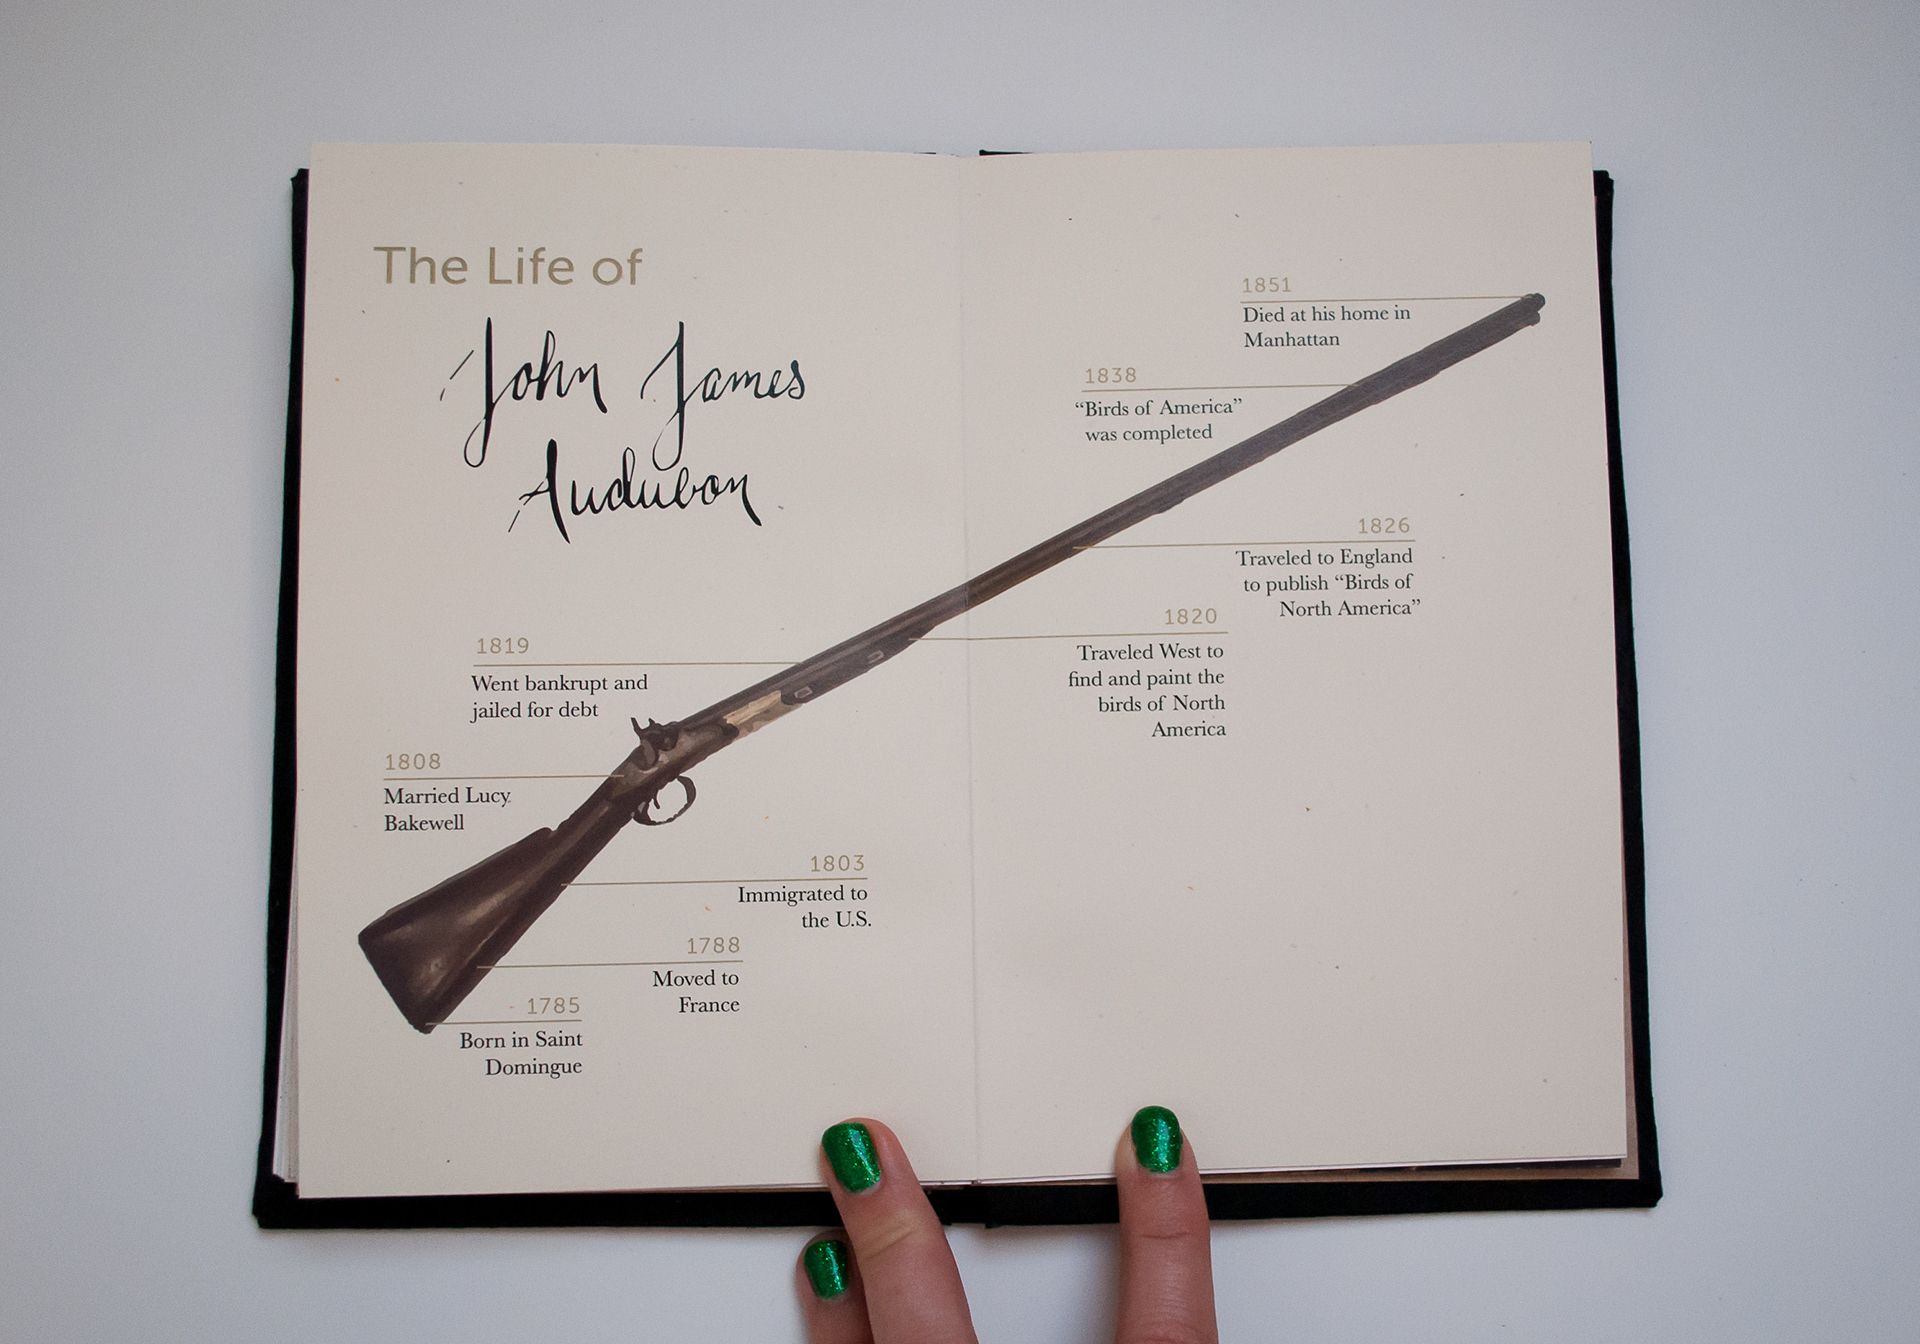 The Life of
John James
Audubon
1819
Went bankrupt and
jailed for debt
1808
Married Lucy
Bakewell
1803
Immigrated to
the U.S.
1788
Moved to
France
1785
Born in Saint
Domingue
1851
Died at his home in
Manhattan
1838
“Birds of America”
was completed
1826
Traveled to England
to publish “Birds of
North America”
1820
Traveled West to
find and paint the
birds of North
America